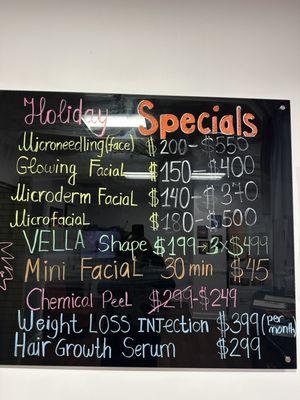 Holiday Specials
Microneedling(face) $200-$550
Glowing Facial $150-$400
Microderm Facial $140-$370
Microfacial $180-$500
VELLA Shape $199→3x$499
Mini Facial 30 min $45
Chemical Peel $299-$249
Weight LOSS INJection $399(per month)
Hair Growth Serum $299